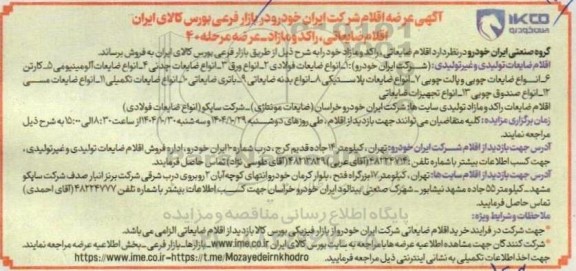 IKCO
ایران خودرو
آگهی عرضه اقلام شرکت ایران خودرو در بازار فرعی بورس کالای ایران
اقلام ضایعاتی، راکد و مازاد - عرضه مرحله ۴۰
گروه صنعتی ایران خودرو در نظر دارد اقلام ضایعاتی، راکد و مازاد خود را به شرح ذیل از طریق بازار فرعی بورس کالای ایران به فروش برساند.
اقلام ضایعات تولیدی و غیرتولیدی: (شرکت ایران خودرو): ۱-انواع ضایعات فولادی ۲-انواع ورق ۳-انواع ضایعات چدنی ۴-انواع ضایعات آلومینیومی ۵-کارتن
۶-انواع ضایعات چوبی و پالت چوبی ۷-انواع ضایعات پلاستیکی ۸-انواع بدنه ضایعاتی ۹-باتری ضایعاتی ۱۰-انواع ضایعات تکمیلی ۱۱-انواع ضایعات مسی
۱۲-انواع صندوق چوبی ۱۳-انواع تجهیزات ضایعاتی
اقلام ضایعات راکد و مازاد تولیدی سایت ها: شرکت ایران خودرو خراسان (ضایعات مونتاژی) - شرکت ساپکو (انواع ضایعات فولادی)
زمان برگزاری مزایده: کلیه متقاضیان می توانند جهت بازدید از اقلام، طی روزهای دوشنبه ۱۴۰۴/۱۰/۲۹ و سه شنبه ۱۴۰۴/۱۰/۳۰ از ساعت ۸:۳۰ الی ۱۵:۰۰ به شرح ذیل
مراجعه نمایند.
آدرس جهت بازدید از اقلام شرکت ایران خودرو: تهران، کیلومتر ۱۴ جاده قدیم کرج، درب شماره ۱۰ ایران خودرو، اداره فروش اقلام ضایعات تولیدی و غیرتولیدی،
جهت کسب اطلاعات بیشتر با شماره تلفن: ۴۸۲۳۲۷۱۴ (آقای عرب) ۴۸۲۱۳۸۲۹ (آقای طوسی نژاد) تماس حاصل فرمایند.
آدرس جهت بازدید از اقلام سایت ها: تهران، کیلومتر ۱۷ بزرگراه فتح، بلوار کرمان خودرو انتهای کوچه آبان ۲ روبروی درب شرقی شرکت برنز انبار صدف شرکت ساپکو
مشهد - کیلومتر ۵۵ جاده مشهد نیشابور - شهرک صنعتی بینالود ایران خودرو خراسان جهت کسب اطلاعات بیشتر با شماره تلفن ۴۸۲۲۴۷۷۷ (آقای احمدی)
تماس حاصل فرمایید.
ملاحظات و شرایط ویژه:
* جهت شرکت در فرآیند خرید اقلام ضایعاتی شرکت ایران خودرو از بازار فیزیکی بورس کالا بازدید از اقلام ضایعاتی الزامی می باشد.
* شرکت کنندگان جهت مشاهده اطلاعیه عرضه ها با مراجعه به سایت بورس کالای ایران www.ime.co.ir - بازارها - بازار فرعی - بخش اطلاعیه عرضه مراجعه نمایند.
جهت اخذ اطلاعات تکمیلی به نشانی اینترنتی ذیل مراجعه فرمایید. https://www.ime.co.ir-https://t.me/Mozayedeirnkhodro
پایگاه اطلاع رسانی مناقصه و مزایده